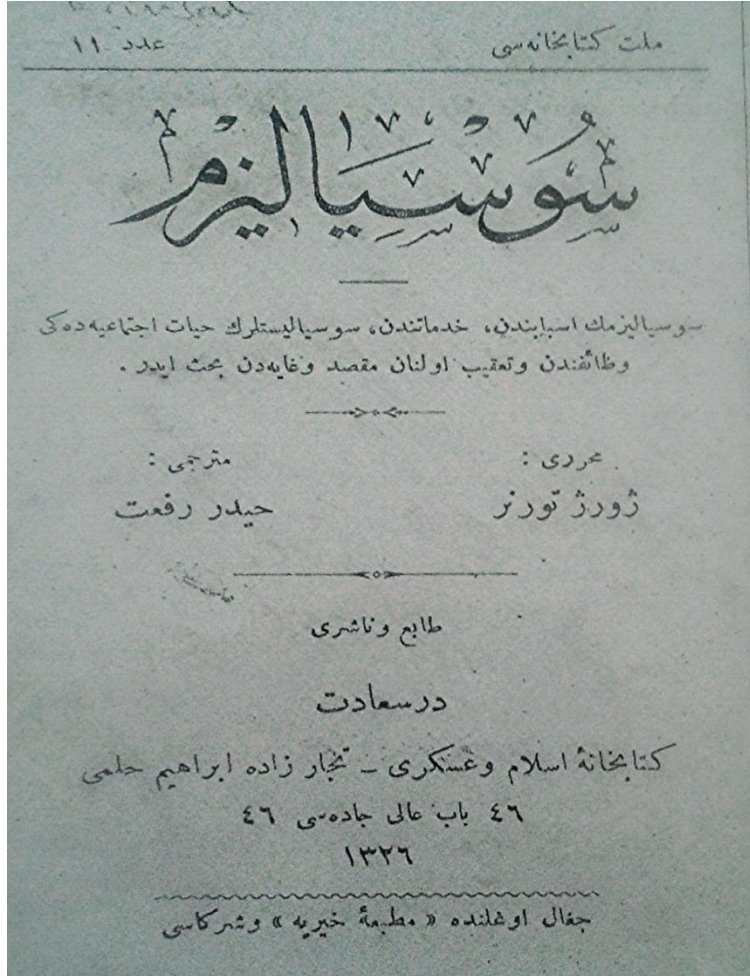 ملت كتابخانه‌سی
عدد ١١
سُوسيَاليزم
سوسياليزمك اسبابندن، خدماتندن، سوسياليستلرك حيات اجتماعيه‌ده‌كی
وظائفندن وتعقيب اولنان مقصد وغايه‌دن بحث ايدر .
محرری :
ژورژ تورنر
مترجمی :
حيدر رفعت
طابع وناشری
درسعادت
كتابخانهٔ اسلام وعسكری – تجار زاده ابراهيم حلمی
٤٦ باب عالی جاده‌سی ٤٦
١٣٢٦
جغال اوغلنده « مطبعهٔ خيريه » وشركاسی